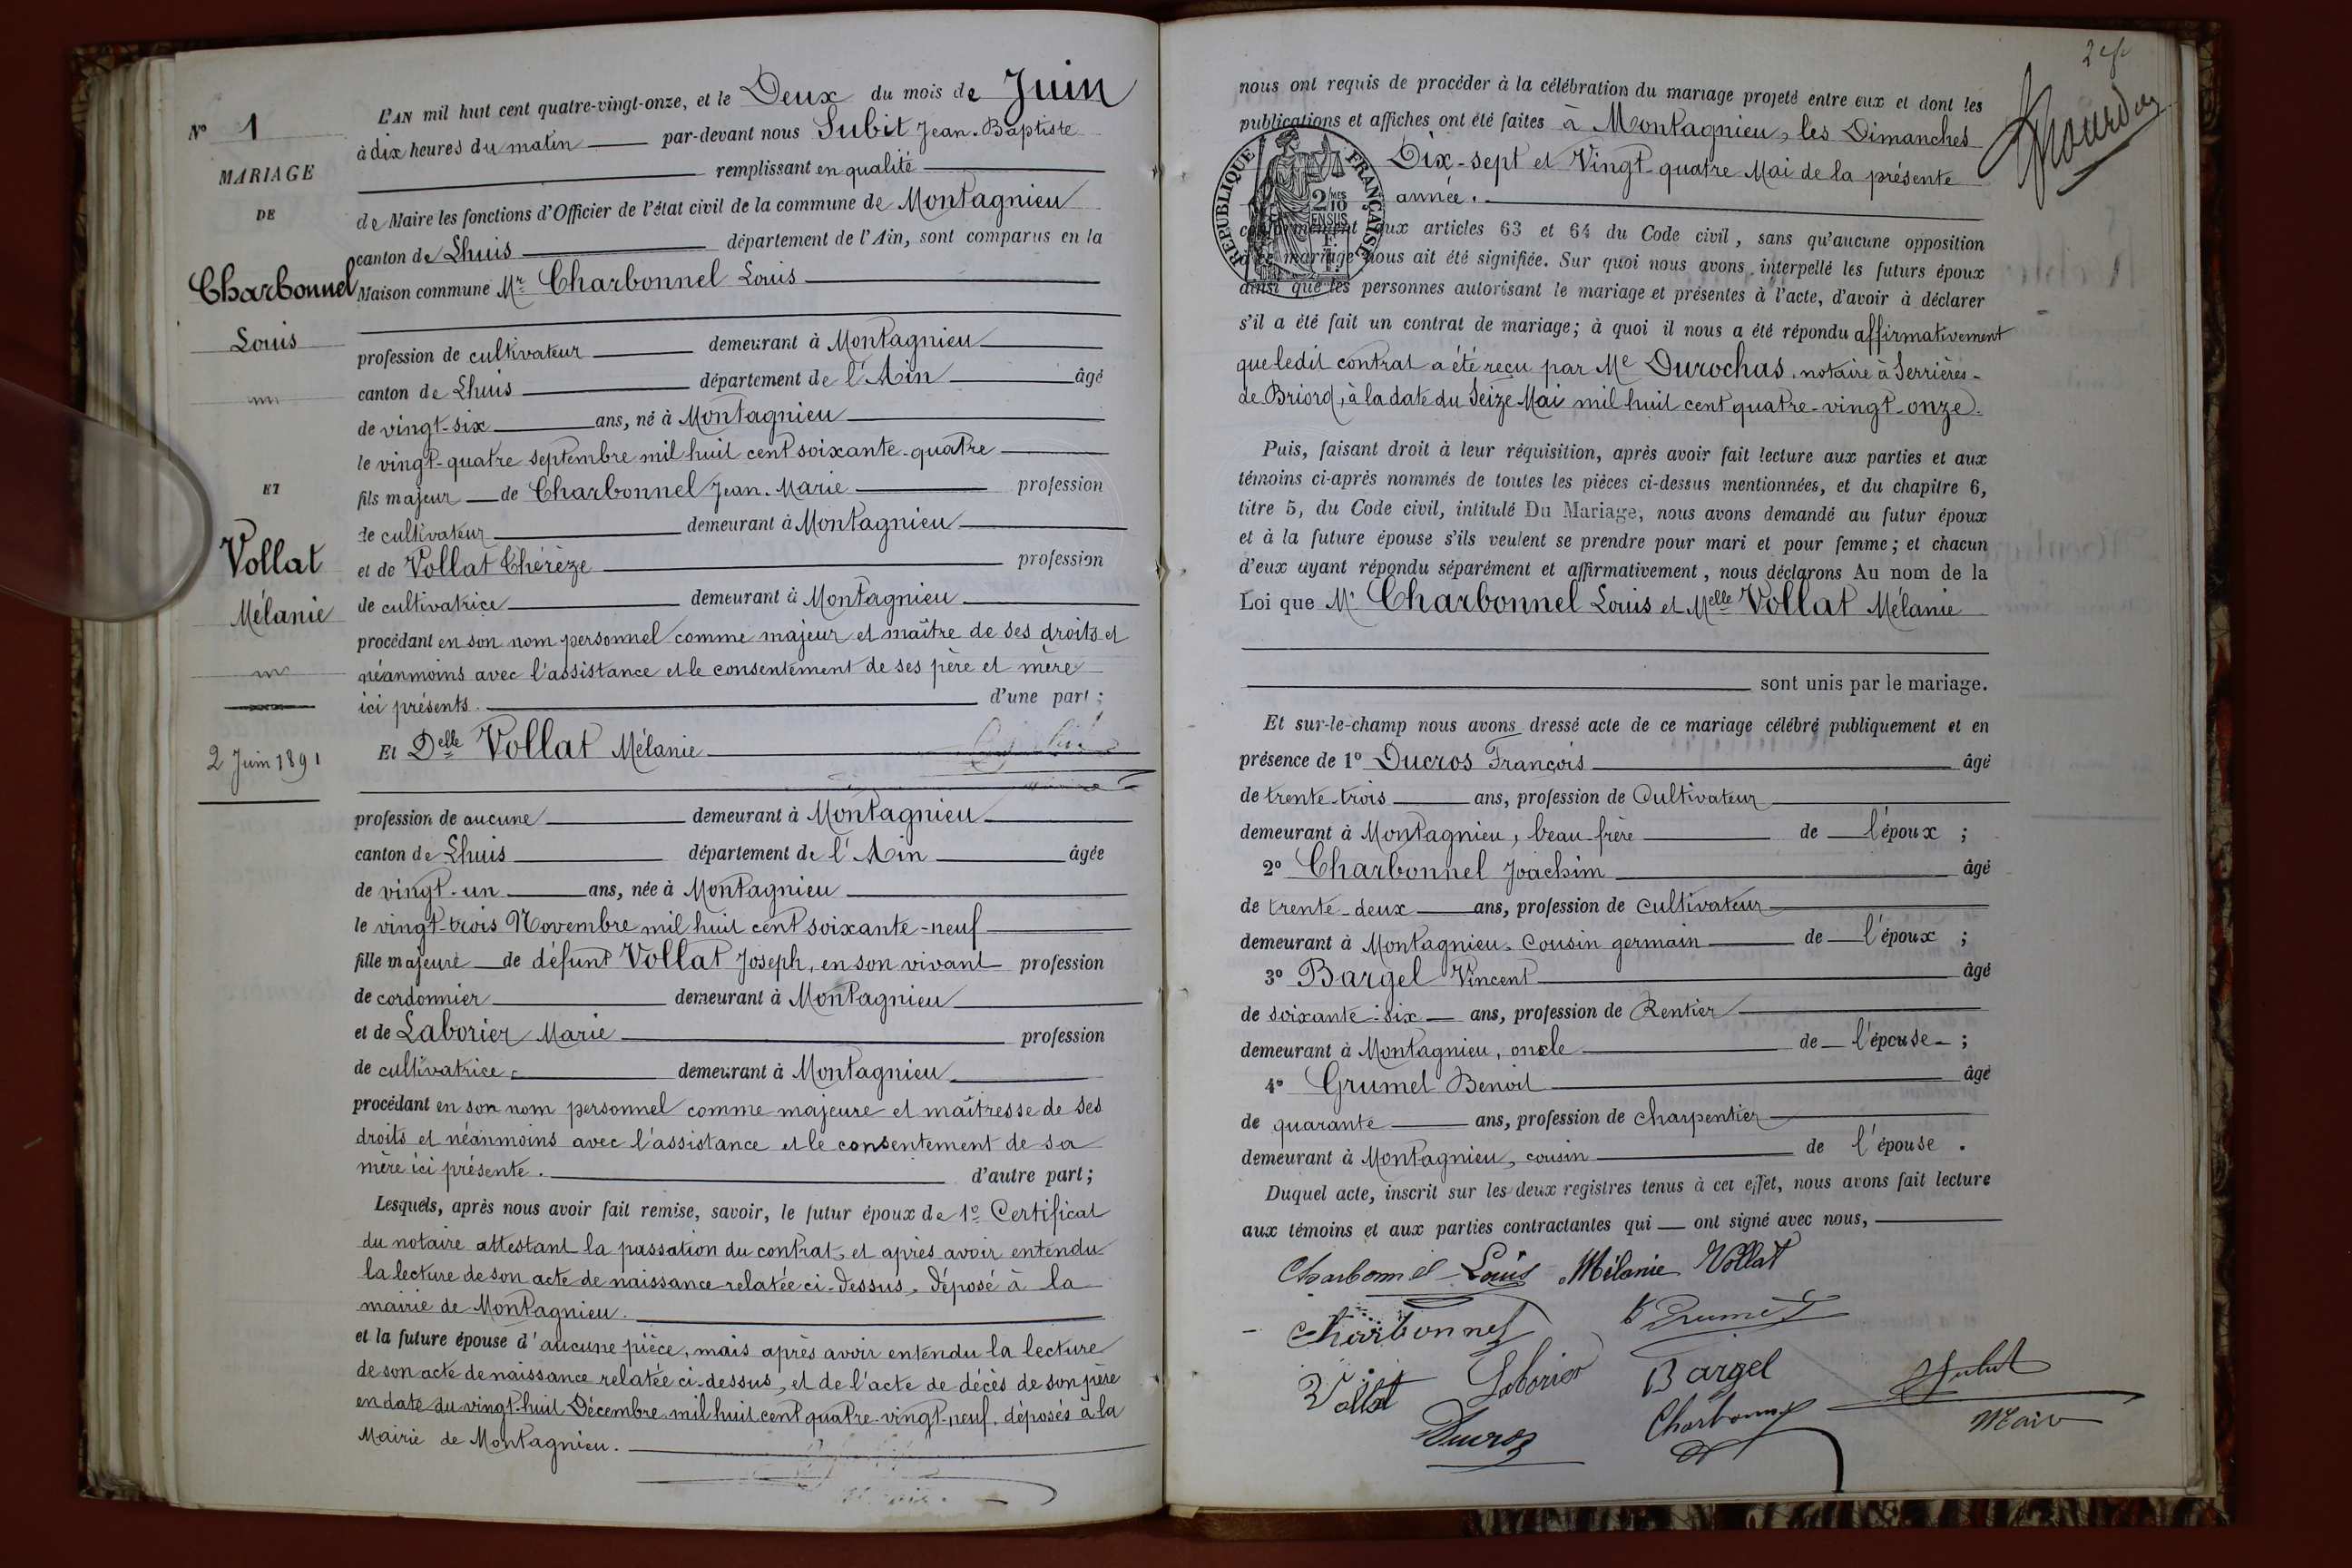 N° 1
MARIAGE
DE
Charbonnel
Louis
ET
Vollat
Mélanie
2 Juin 1891
L'AN mil huit cent quatre-vingt-onze, et le Deux du mois de Juin
à dix heures du matin par-devant nous Subit Jean-Baptiste
remplissant en qualité
de Maire les fonctions d'Officier de l'état civil de la commune de Montagnieu
canton de Lhuis département de l'Ain, sont comparus en la
Maison commune Mr Charbonnel Louis
profession de cultivateur demeurant à Montagnieu
canton de Lhuis département de l'Ain âgé
de vingt-six ans, né à Montagnieu
le vingt-quatre septembre mil huit cent soixante-quatre
fils majeur de Charbonnel Jean-Marie profession
de cultivateur demeurant à Montagnieu
et de Vollat Thérèze profession
de cultivatrice demeurant à Montagnieu
procédant en son nom personnel comme majeur et maître de ses droits et
néanmoins avec l'assistance et le consentement de ses père et mère
ici présents. d'une part ;
Et Delle Vollat Mélanie
profession de aucune demeurant à Montagnieu
canton de Lhuis département de l'Ain âgée
de vingt-un ans, née à Montagnieu
le vingt-trois Novembre mil huit cent soixante-neuf
fille majeure de défunt Vollat Joseph, en son vivant profession
de cordonnier demeurant à Montagnieu
et de Laborier Marie profession
de cultivatrice demeurant à Montagnieu
procédant en son nom personnel comme majeure et maîtresse de ses
droits et néanmoins avec l'assistance et le consentement de sa
mère ici présente. d'autre part ;
Lesquels, après nous avoir fait remise, savoir, le futur époux de 1° Certificat
du notaire attestant la passation du contrat, et après avoir entendu
la lecture de son acte de naissance relatée ci-dessus, déposé à la
mairie de Montagnieu.
et la future épouse d'aucune pièce, mais après avoir entendu la lecture
de son acte de naissance relatée ci-dessus, et de l'acte de décès de son père
en date du vingt-huit Décembre mil huit cent quatre-vingt-neuf, déposés à la
Mairie de Montagnieu.
nous ont requis de procéder à la célébration du mariage projeté entre eux et dont les
publications et affiches ont été faites à Montagnieu, les Dimanches
Dix-sept et Vingt-quatre Mai de la présente
année.
RÉPUBLIQUE FRANÇAISE
2 10MES
EN SUS
conformément aux articles 63 et 64 du Code civil, sans qu'aucune opposition
à ce mariage nous ait été signifiée. Sur quoi nous avons interpellé les futurs époux
ainsi que les personnes autorisant le mariage et présentes à l'acte, d'avoir à déclarer
s'il a été fait un contrat de mariage ; à quoi il nous a été répondu affirmativement
que ledit contrat a été reçu par Me Durochas, notaire à Serrières-
de Briord, à la date du Seize Mai mil huit cent quatre-vingt-onze.
Puis, faisant droit à leur réquisition, après avoir fait lecture aux parties et aux
témoins ci-après nommés de toutes les pièces ci-dessus mentionnées, et du chapitre 6,
titre 5, du Code civil, intitulé Du Mariage, nous avons demandé au futur époux
et à la future épouse s'ils veulent se prendre pour mari et pour femme ; et chacun
d'eux ayant répondu séparément et affirmativement, nous déclarons Au nom de la
Loi que Mr Charbonnel Louis et Melle Vollat Mélanie
sont unis par le mariage.
Et sur-le-champ nous avons dressé acte de ce mariage célébré publiquement et en
présence de 1° Ducros François âgé
de trente-trois ans, profession de Cultivateur
demeurant à Montagnieu, beau-frère de l'époux ;
2° Charbonnel Joachim âgé
de trente-deux ans, profession de cultivateur
demeurant à Montagnieu, Cousin germain de l'époux ;
3° Bargel Vincent âgé
de soixante-six ans, profession de Rentier
demeurant à Montagnieu, oncle de l'épouse ;
4° Grumet Benoit âgé
de quarante ans, profession de charpentier
demeurant à Montagnieu, cousin de l'épouse.
Duquel acte, inscrit sur les deux registres tenus à cet effet, nous avons fait lecture
aux témoins et aux parties contractantes qui ont signé avec nous,
Charbonnel Louis Mélanie Vollat
Charbonnel Grumet
Vollat Laborier Bargel Subit
Ducros Charbonnel Maire